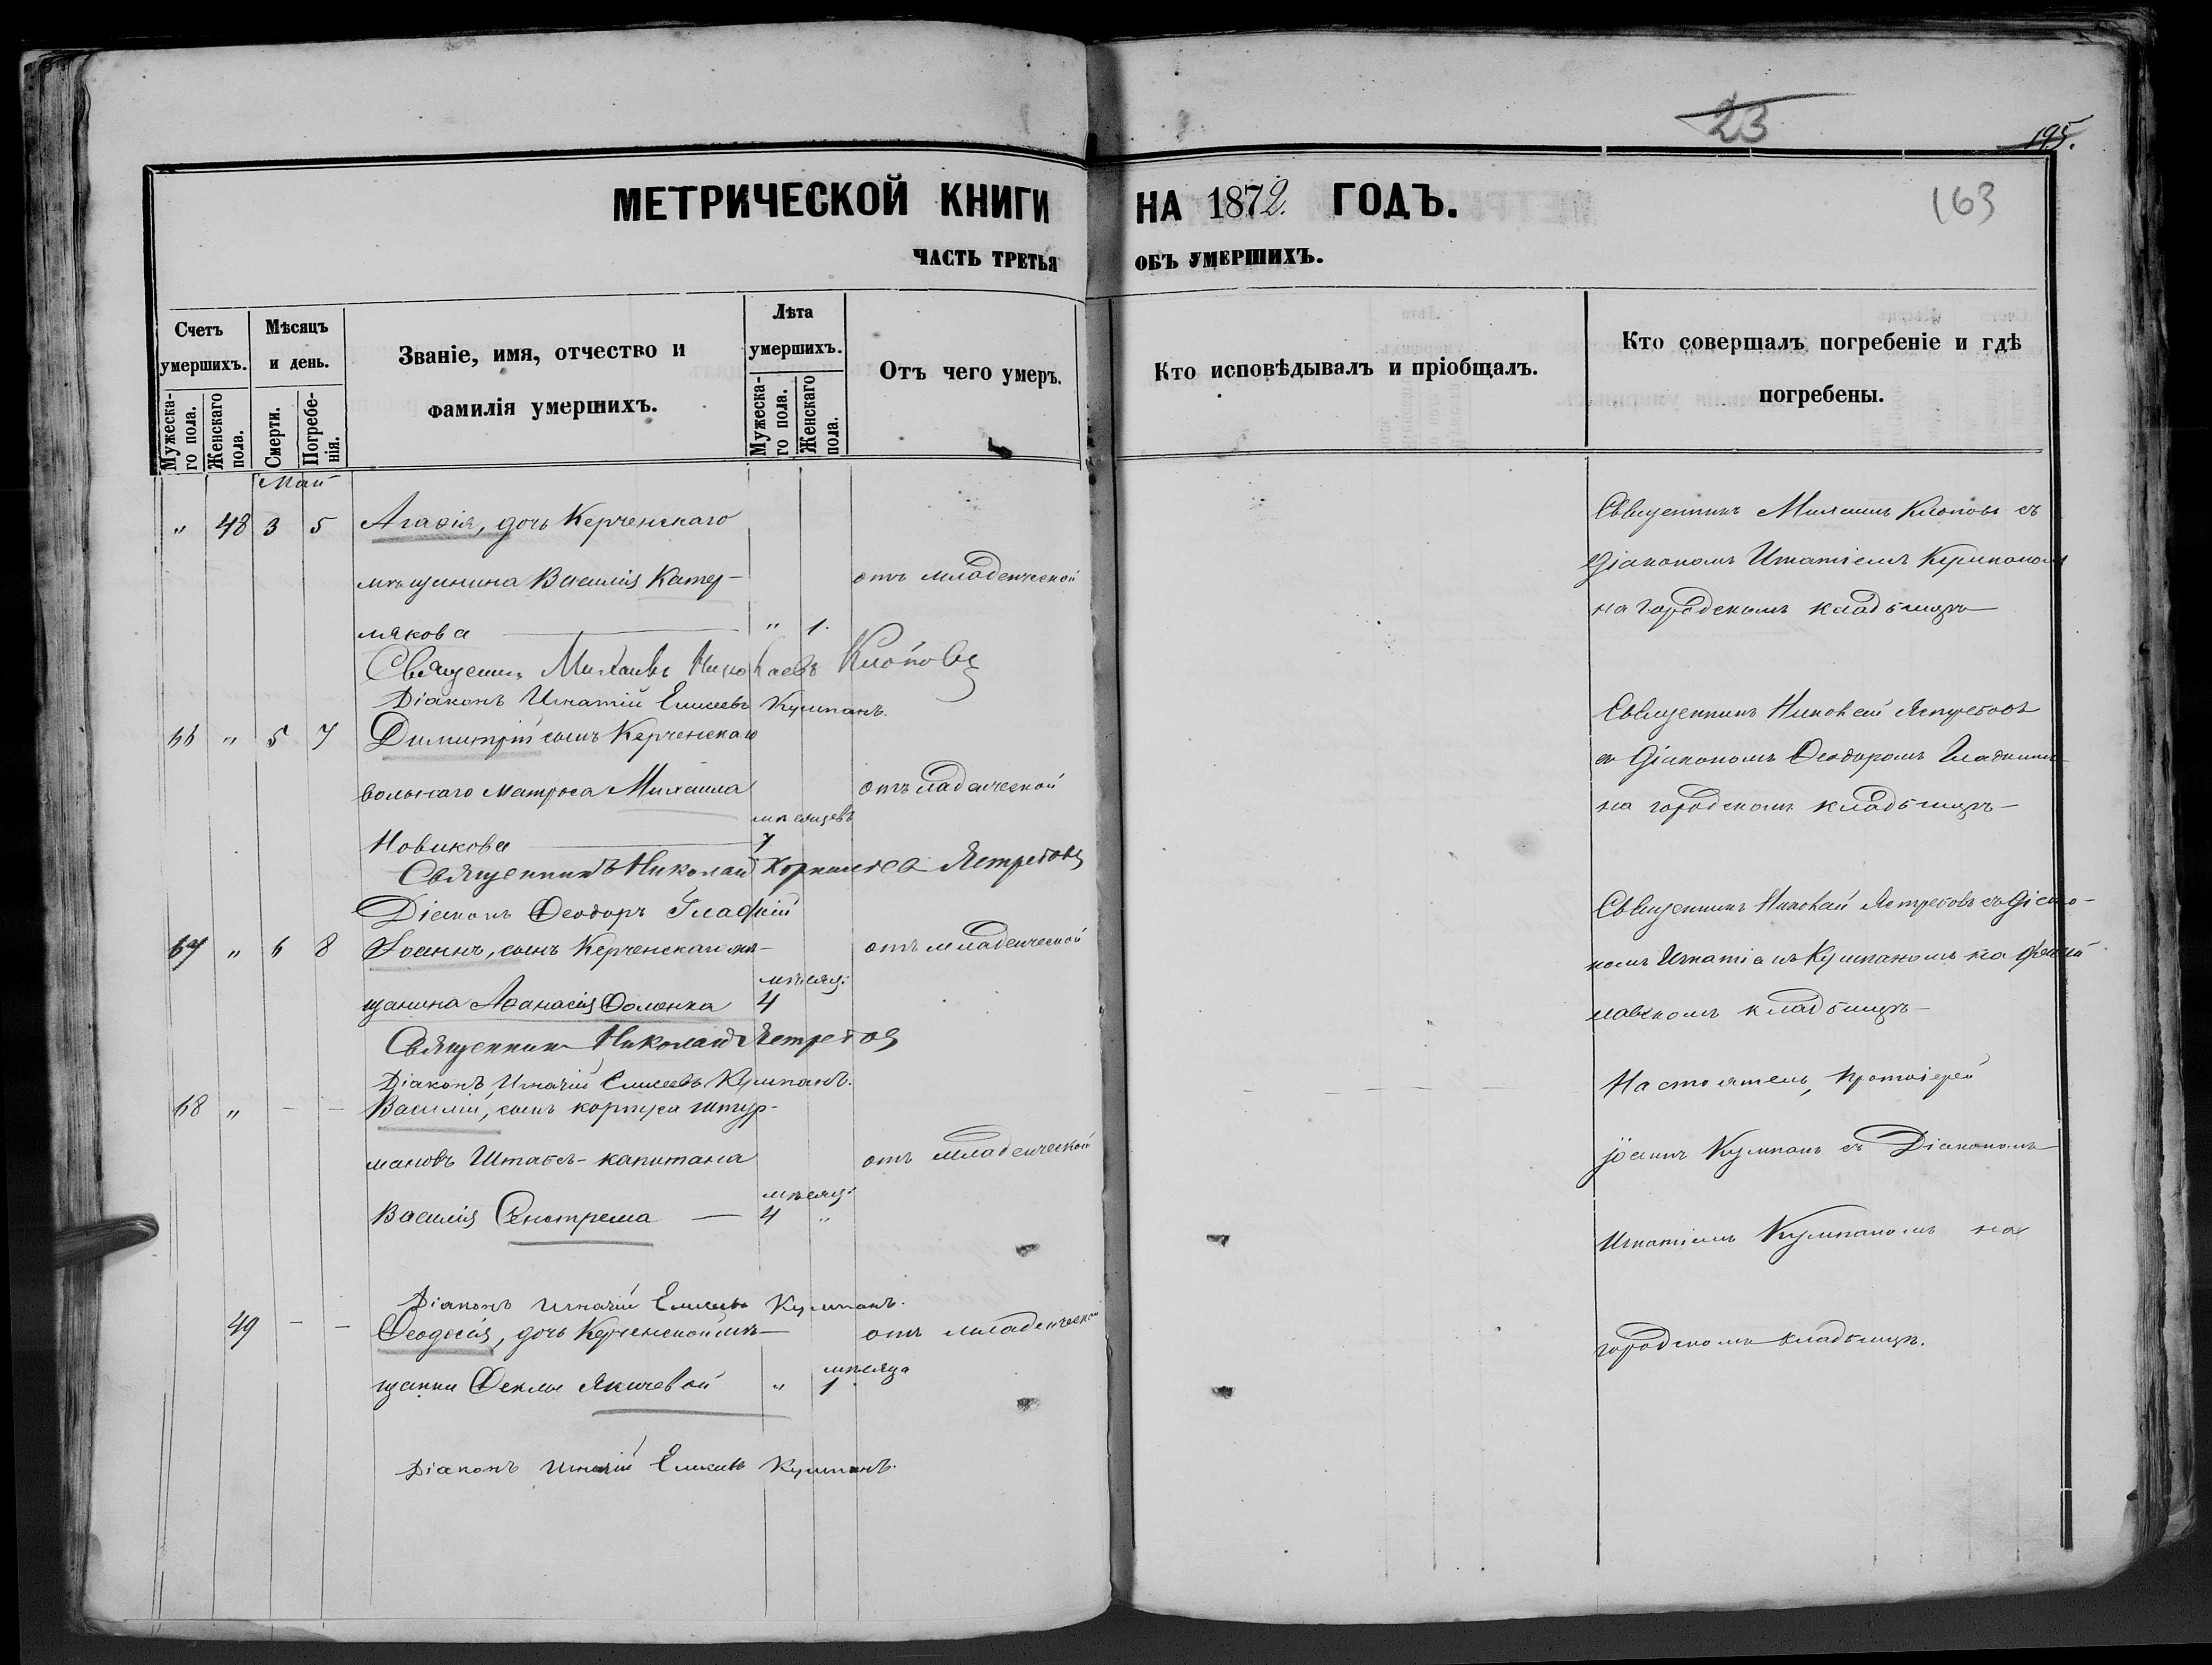 23
195.
163
МЕТРИЧЕСКОЙ КНИГИ НА 1872. ГОДЪ.
ЧАСТЬ ТРЕТЬЯ ОБЪ УМЕРШИХЪ.
Счетъ умершихъ.
Мужеска-го пола.
Женскаго пола.
Мѣсяцъ и день.
Смерти.
Погребе-нія.
Званіе, имя, отчество и фамилія умершихъ.
Лѣта умершихъ.
Мужеска-го пола.
Женскаго пола.
Отъ чего умеръ.
Кто исповѣдывалъ и пріобщалъ.
Кто совершалъ погребеніе и гдѣ погребены.
Май
" 48 3 5 Агаѳія, дочь Керченскаго
мѣщанина Василія Катер-
отъ младенческой
" 1.
Священникъ Михаилъ Клоповъ съ
Діакономъ Игнатіемъ Кумпаномъ
на городскомъ кладбищѣ
Священникъ Михаилъ Николаевъ Клоповъ
Діаконъ Игнатій Елисеевъ Кумпанъ.
66 " 5 7 Димитрій сынъ Керченскаго
вольнаго матроса Михаила
Новикова
мѣсяцевъ
7
отъ младенческой
Священникъ Николай Ястребовъ
съ Діакономъ Ѳеодоромъ Гладкимъ
на городскомъ кладбищѣ
Священникъ Николай Корнилiевъ Ястребовъ
Діаконъ Ѳеодоръ Гладкій
67 " 6 8 Іоаннъ, сынъ Керченскаго мѣ-
щанина Аѳанасія Ѳоменка
мѣсяц:
4
отъ младенческой
Священникъ Николай Ястребовъ съ Діако-
номъ Игнатіемъ Кумпаномъ на
кладбищѣ
Священникъ Николай Ястребовъ
Діаконъ Игнатій Елисеевъ Кумпанъ.
68 " - - Василій, сынъ корпуса штур-
мановъ Штабсъ-капитана
Василія
мѣсяц:
4 "
отъ младенческой
Настоятель, Протоіерей
Іоаннъ Кумпанъ съ Діакономъ
Игнатіемъ Кумпаномъ на
городскомъ кладбищѣ.
Діаконъ Игнатій Елисеевъ Кумпанъ.
49 - - Ѳеодосія, дочь Керченской мѣ-
щанки Ѳеклы Якичевой
мѣсяца
" 1
отъ младенческой
Діаконъ Игнатій Елисеевъ Кумпанъ.